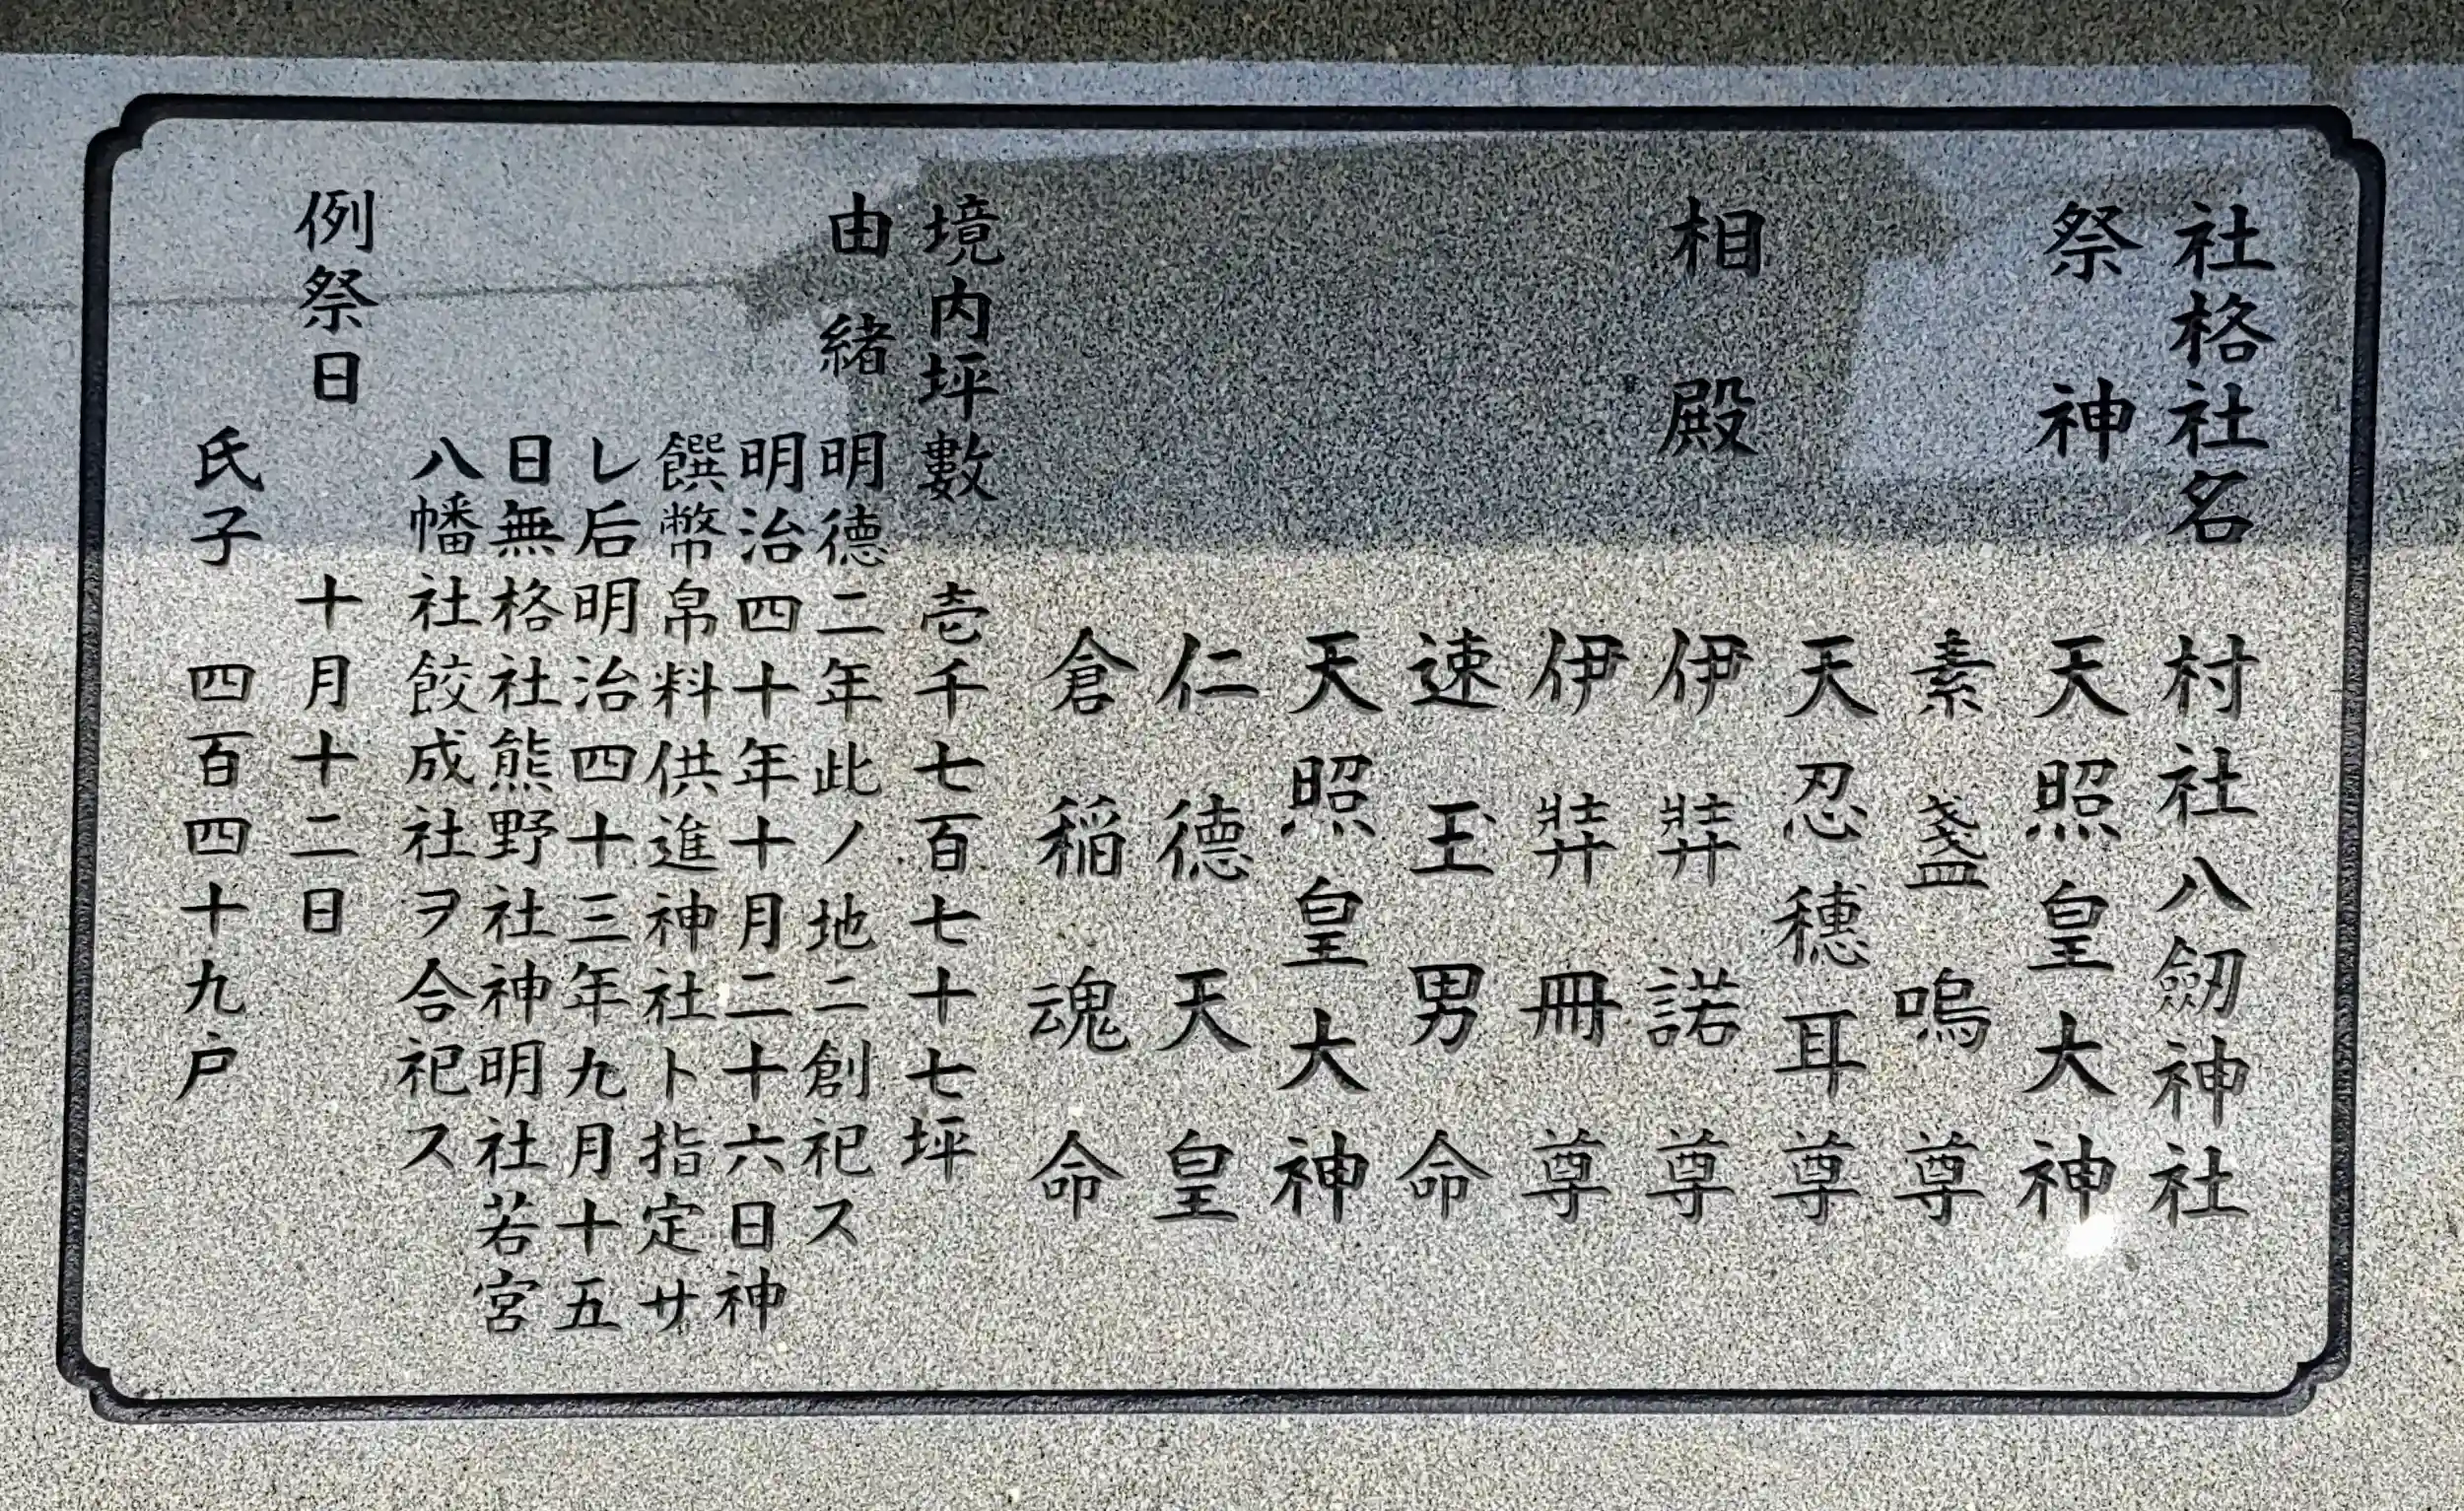 社格社名 村社八劔神社
祭神 天照皇大神
素盞嗚尊
天忍穗耳尊
相殿 伊弉諾尊
伊弉冊尊
速玉男命
天照皇大神
仁德天皇
倉稲魂命
境内坪數 壱千七百七十七坪
由緒 明德二年此ノ地ニ創祀ス
明治四十年十月二十六日神
饌幣帛料供進神社ト指定サ
レ后明治四十三年九月十五
日無格社熊野社神明社若宮
八幡社餃成社ヲ合祀ス
例祭日 十月十二日
氏子 四百四十九戸